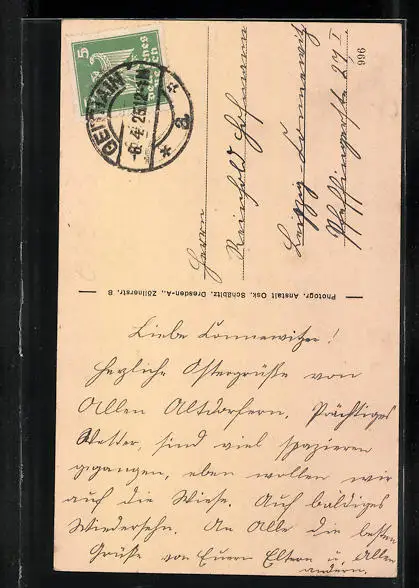 5
Deutsches Reich
GEITHAIN
-8.4.25 12-1N
* a *
996
Herrn
Reinhold Hofmann
Leipzig-Connewitz
Pfeffingerstr. 27 I
Photogr. Anstalt Osk. Schäbitz, Dresden-A., Zöllnerstr. 8
Liebe Connewitzer!
Herzliche Ostergrüße von
Allen Altdorfern. Prächtiges
Wetter, sind viel spazieren
gegangen, eben wollen wir
auf die Wiese. Auf baldiges
Wiedersehn. An Alle die besten
Grüße von Euern Eltern u. Allen
andern.